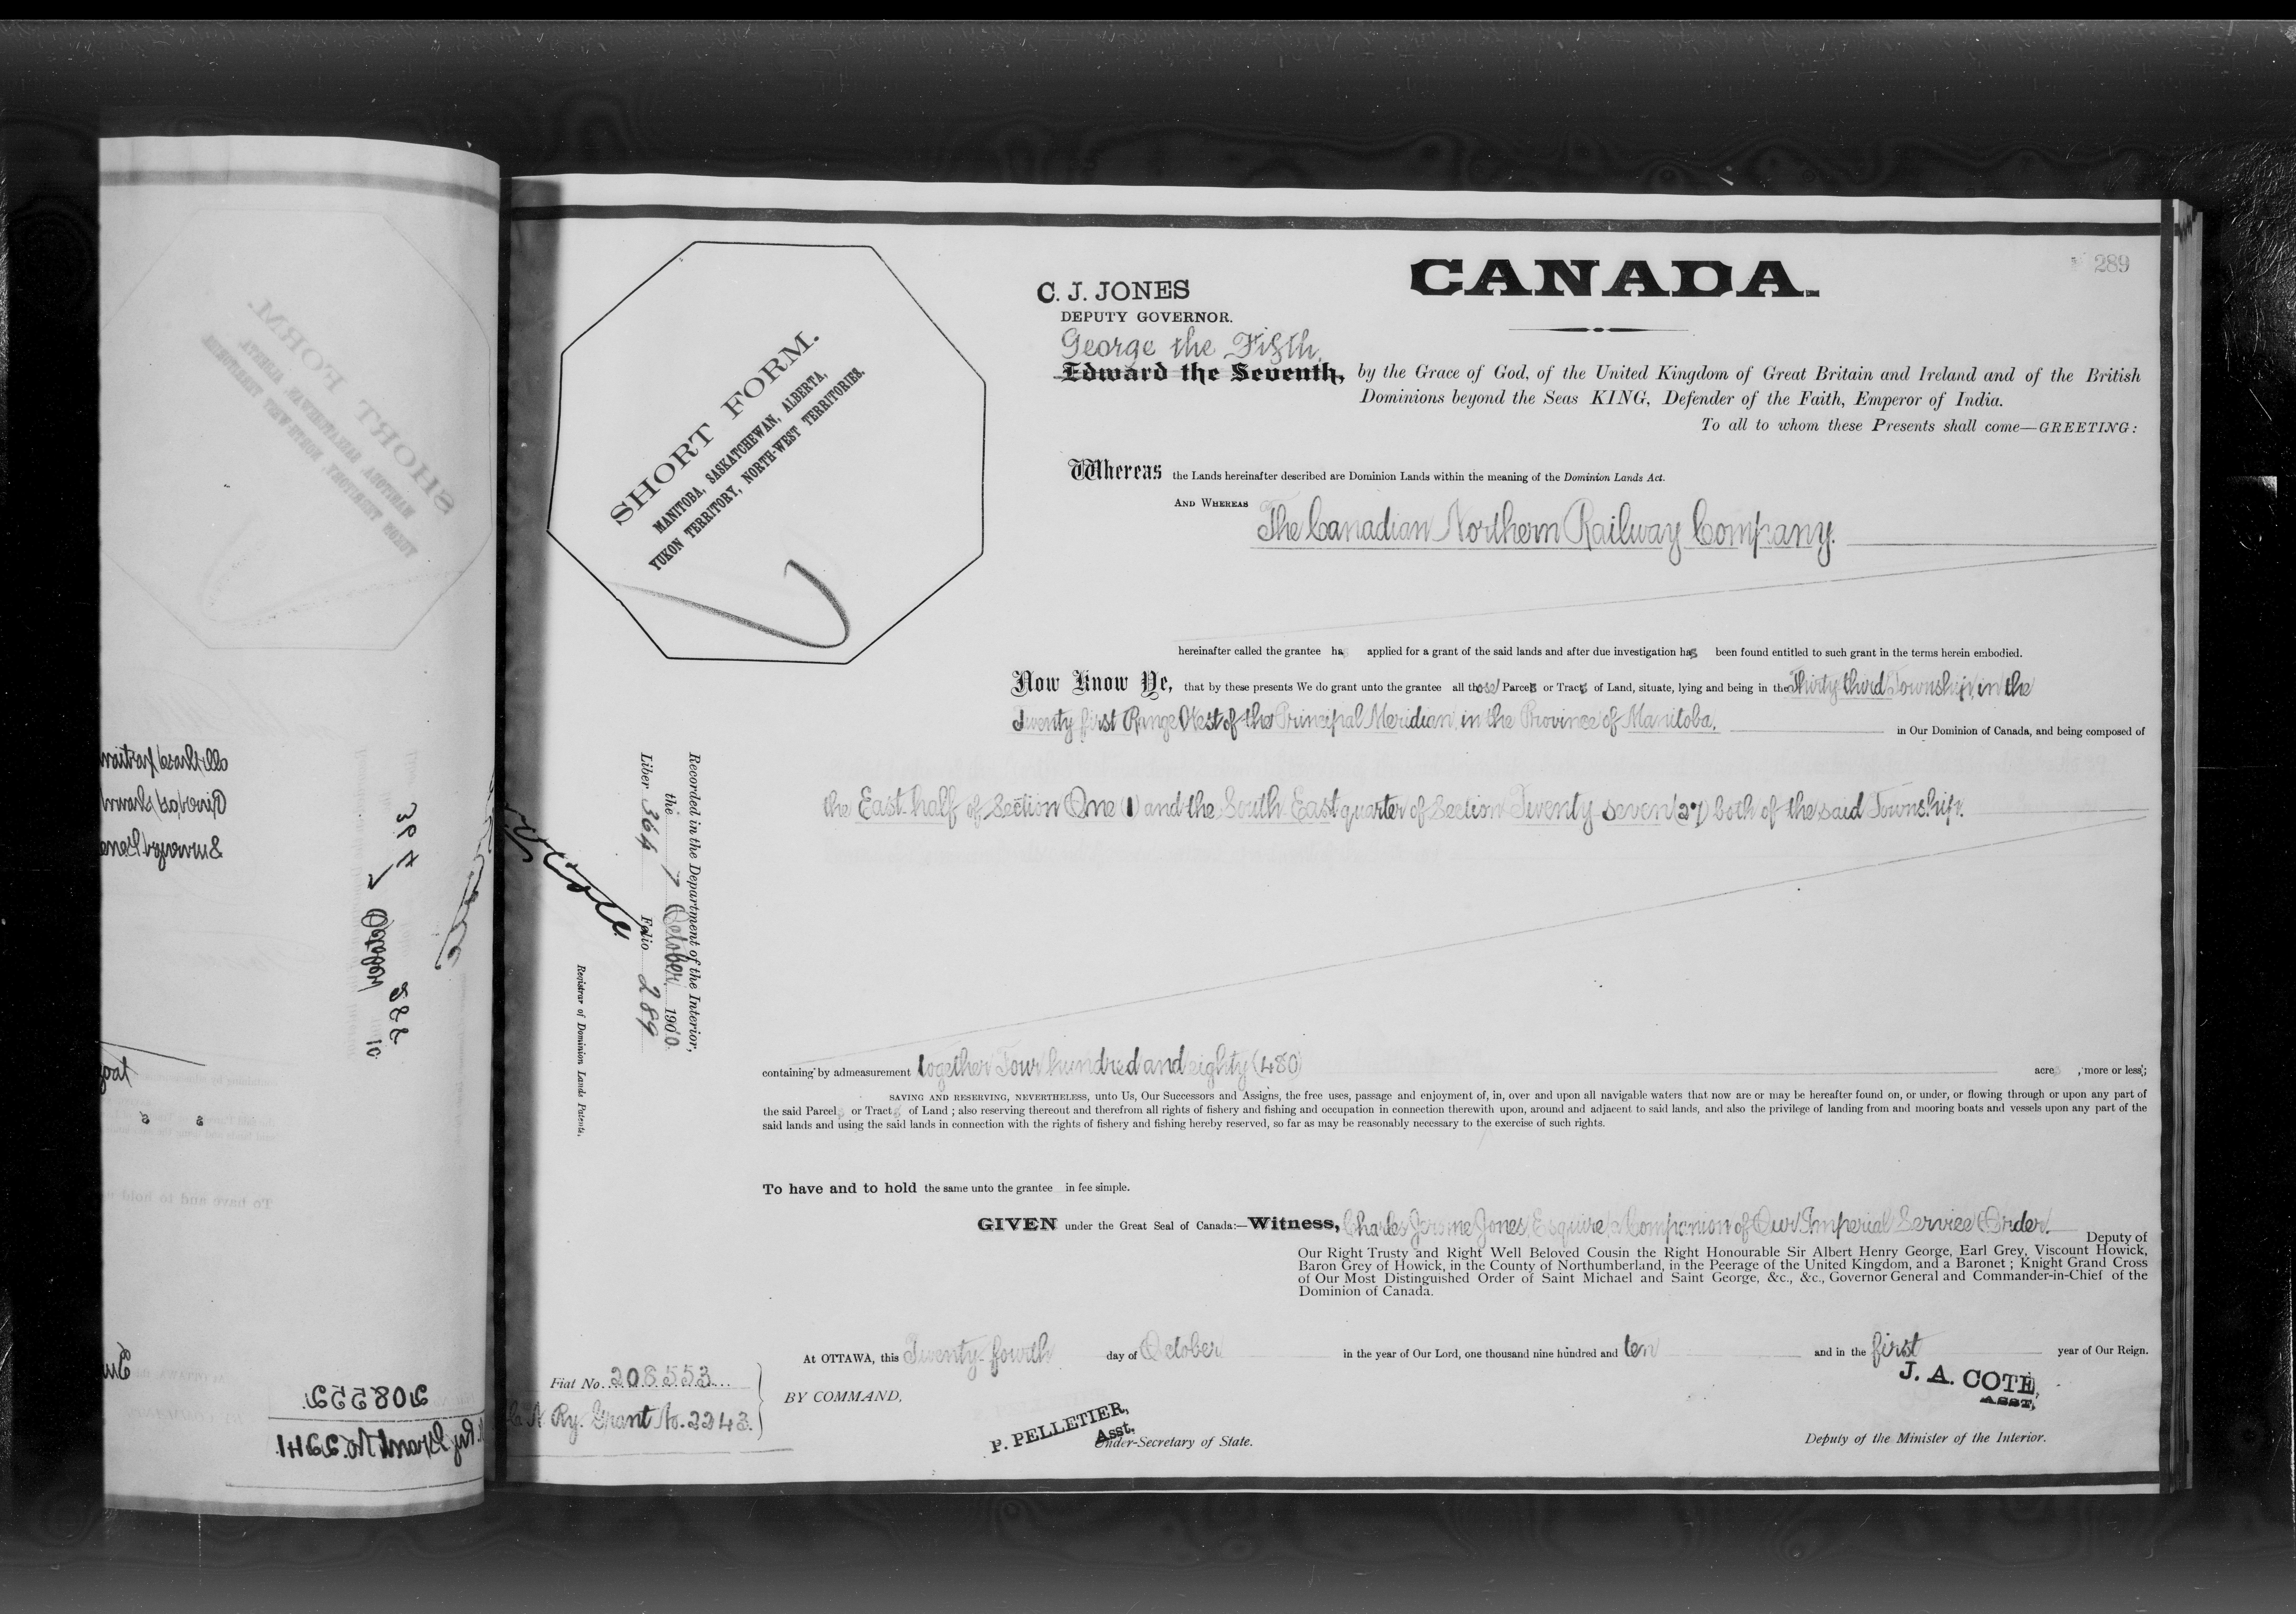 289
CANADA.
C. J. JONES
DEPUTY GOVERNOR.
George the Fifth,
Edward the Seventh, by the Grace of God, of the United Kingdom of Great Britain and Ireland and of the British
Dominions beyond the Seas KING, Defender of the Faith, Emperor of India.
To all to whom these Presents shall come—GREETING:
SHORT FORM.
MANITOBA, SASKATCHEWAN, ALBERTA,
YUKON TERRITORY, NORTH-WEST TERRITORIES.
Whereas the Lands hereinafter described are Dominion Lands within the meaning of the Dominion Lands Act.
AND WHEREAS The Canadian Northern Railway Company.
hereinafter called the grantee has applied for a grant of the said lands and after due investigation has been found entitled to such grant in the terms herein embodied.
Now Know Ye, that by these presents We do grant unto the grantee all those Parcels or Tracts of Land, situate, lying and being in the Thirty-third Township, in the
Twenty first Range West of the Principal Meridian, in the Province of Manitoba, in Our Dominion of Canada, and being composed of
the East half of Section One (1) and the South East quarter of Section Twenty-seven (27) both of the said Township.
Recorded in the Department of the Interior,
the 7 October 1910
Liber 364 Folio 289
Registrar of Dominion Lands Patents.
containing by admeasurement together Four hundred and eighty (480) acres, more or less;
SAVING AND RESERVING, NEVERTHELESS, unto Us, Our Successors and Assigns, the free uses, passage and enjoyment of, in, over and upon all navigable waters that now are or may be hereafter found on, or under, or flowing through or upon any part of
the said Parcels or Tracts of Land; also reserving thereout and therefrom all rights of fishery and fishing and occupation in connection therewith upon, around and adjacent to said lands, and also the privilege of landing from and mooring boats and vessels upon any part of the
said lands and using the said lands in connection with the rights of fishery and fishing hereby reserved, so far as may be reasonably necessary to the exercise of such rights.
To have and to hold the same unto the grantee in fee simple.
GIVEN under the Great Seal of Canada:—Witness, Charles Jerome Jones, Esquire, Companion of Our Imperial Service Order. Deputy of
Our Right Trusty and Right Well Beloved Cousin the Right Honourable Sir Albert Henry George, Earl Grey, Viscount Howick,
Baron Grey of Howick, in the County of Northumberland, in the Peerage of the United Kingdom, and a Baronet; Knight Grand Cross
of Our Most Distinguished Order of Saint Michael and Saint George, &c., &c., Governor General and Commander-in-Chief of the
Dominion of Canada.
At OTTAWA, this Twenty-fourth day of October in the year of Our Lord, one thousand nine hundred and ten and in the first year of Our Reign.
Fiat No. 208553
C. N. Ry. Grant No. 2243.
BY COMMAND,
P. PELLETIER,
Asst.
Under-Secretary of State.
J. A. COTE,
ASST,
Deputy of the Minister of the Interior.